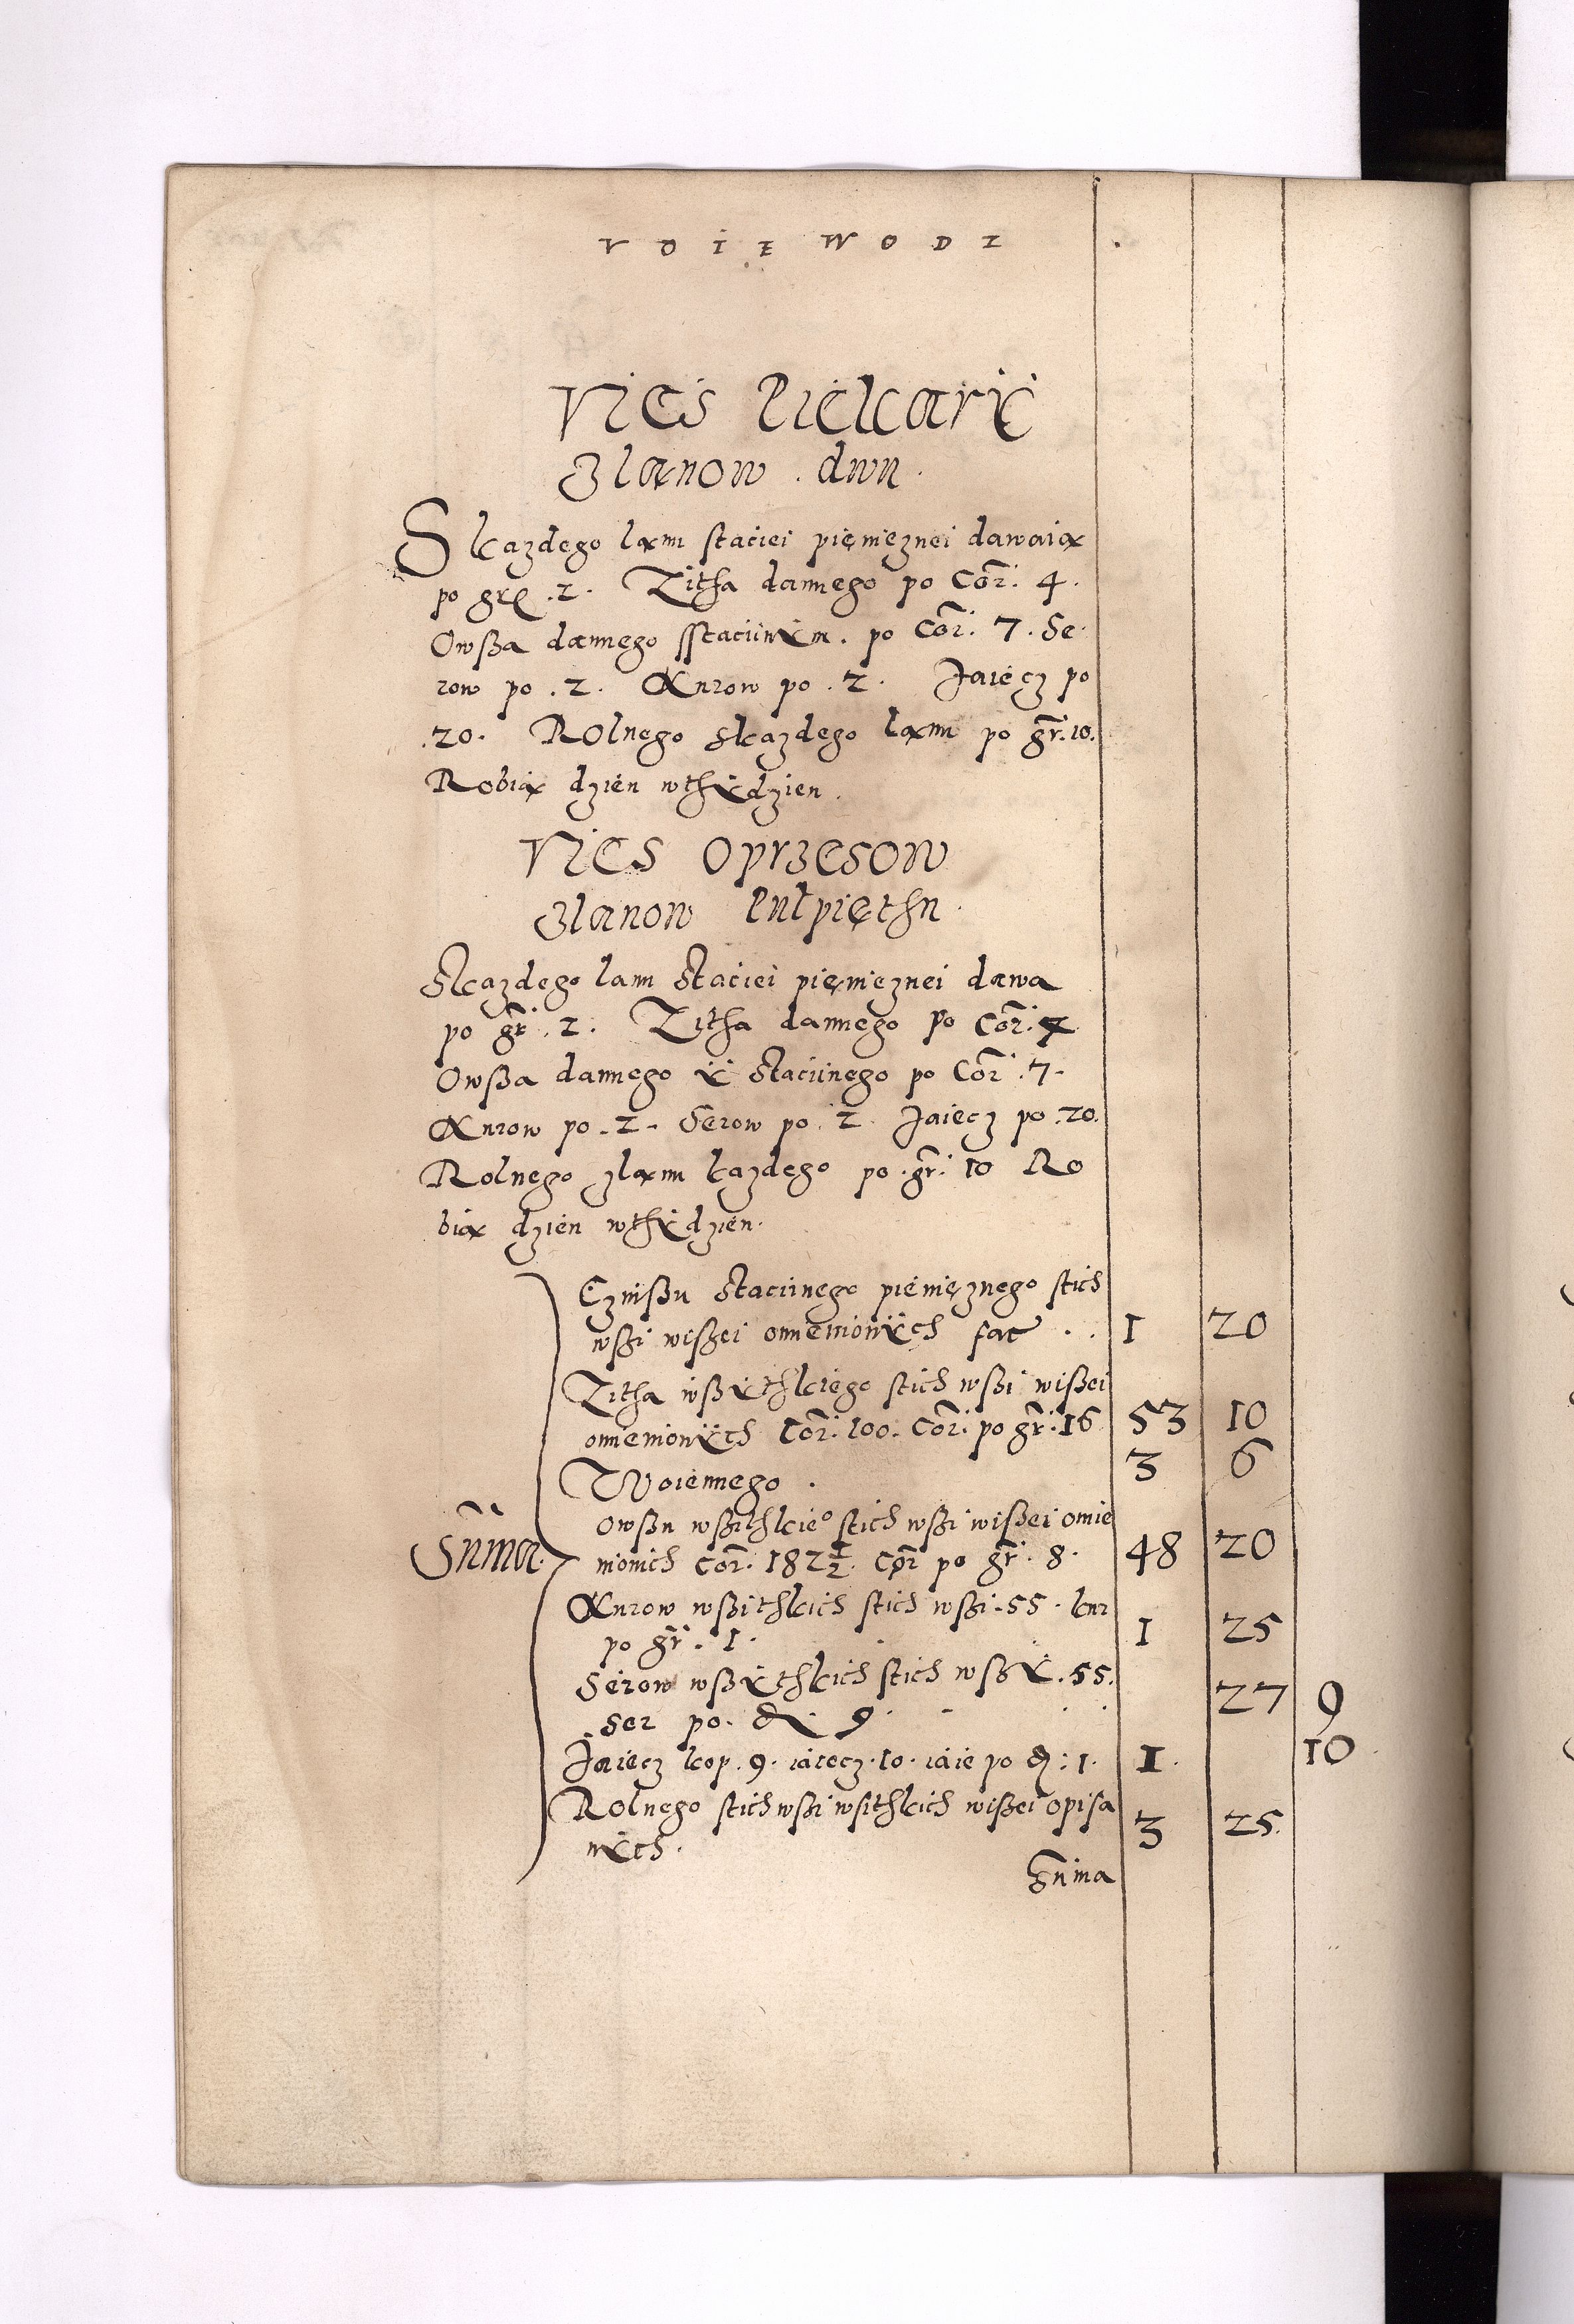 VOIEWODZ
Vies Piekarÿ
3 lanow . dwu .
Skazdego lanu staciei pięnieznei dawaią
po gr . 2 . Zitha dannego po Cor. 4 .
Owssa dannego Staciinÿm . po Cor. 7 . Se
row po . 2 . Kurow po . 2 . Jaiecz po
. 20 . Rolnego skazdego lanu po gr. 10.
Robią dzien wthÿdzien .
Vies Oprzesow
zlanow Pulpięthu .
Skazdego lanu Staciei pięnieznei dawa
po gr . 2 . Zitha dannego po Cor. 4
Owssa dannego ÿ Staciinego po Cor . 7 .
Kurow po . 2 . Serow po . 2 . Jaiecz po . 20.
Rolnego zlanu kazdego po . gr. 10 Ro
bią dzien wthÿdzien .
Czinssu Staciinego pienięznego stich
wssi wissei omienionÿch fac . . 1 20
Zitha wssÿthkiego stich wssi wissei
omienionÿch Cor. 100 . Cor. po gr. 16 53 10
Woiennego . 3 6
Owssu wssithkieo stich wssi wissei omie
Suma . nionich Cor. 182 1/2 . Cor po gr. 8 . 48 20
Kurow wssithkich stich wssi . 55 . kur
po gr . 1 . 1 25
Serow wssÿthkich stich wssÿ . 55 .
Ser po . d . 9 . 27 9
Jaiecz kop . 9 . iaiecz . 10 . iaie po d : 1 . 1 . 10
Rolnego stich wssi wsithkich wissei opisa
nÿch . 3 25 .
Suma